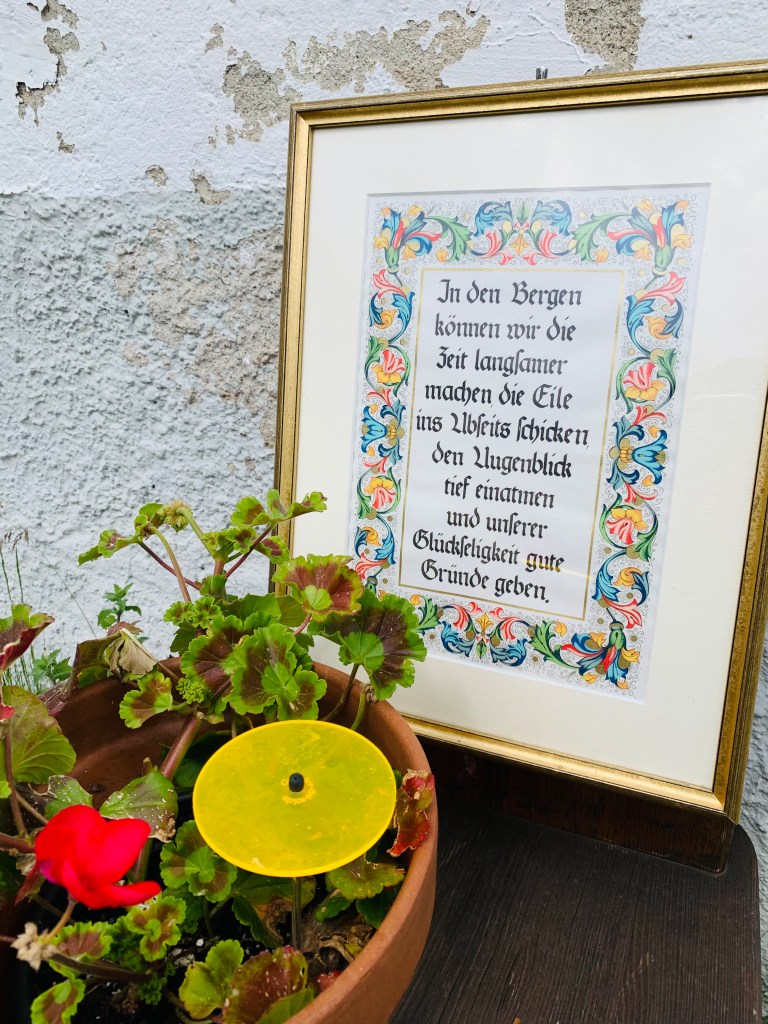 In den Bergen
können wir die
Zeit langsamer
machen die Eile
ins Abseits schicken,
den Augenblick
tief einatmen
und unserer
Glückseligkeit gute
Gründe geben.